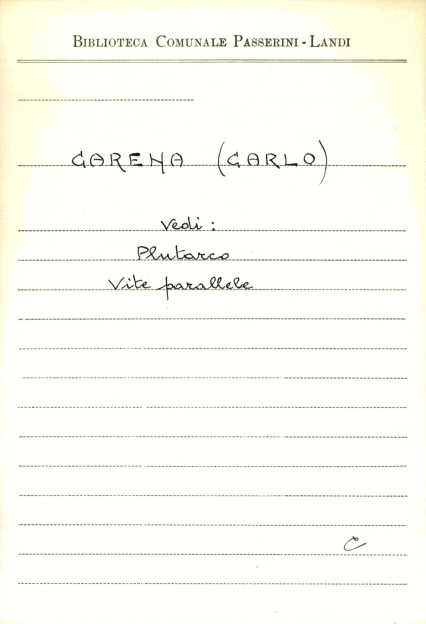 BIBLIOTECA COMUNALE PASSERINI - LANDI
CARENA (CARLO)
Vedi :
Plutarco
Vite parallele
C